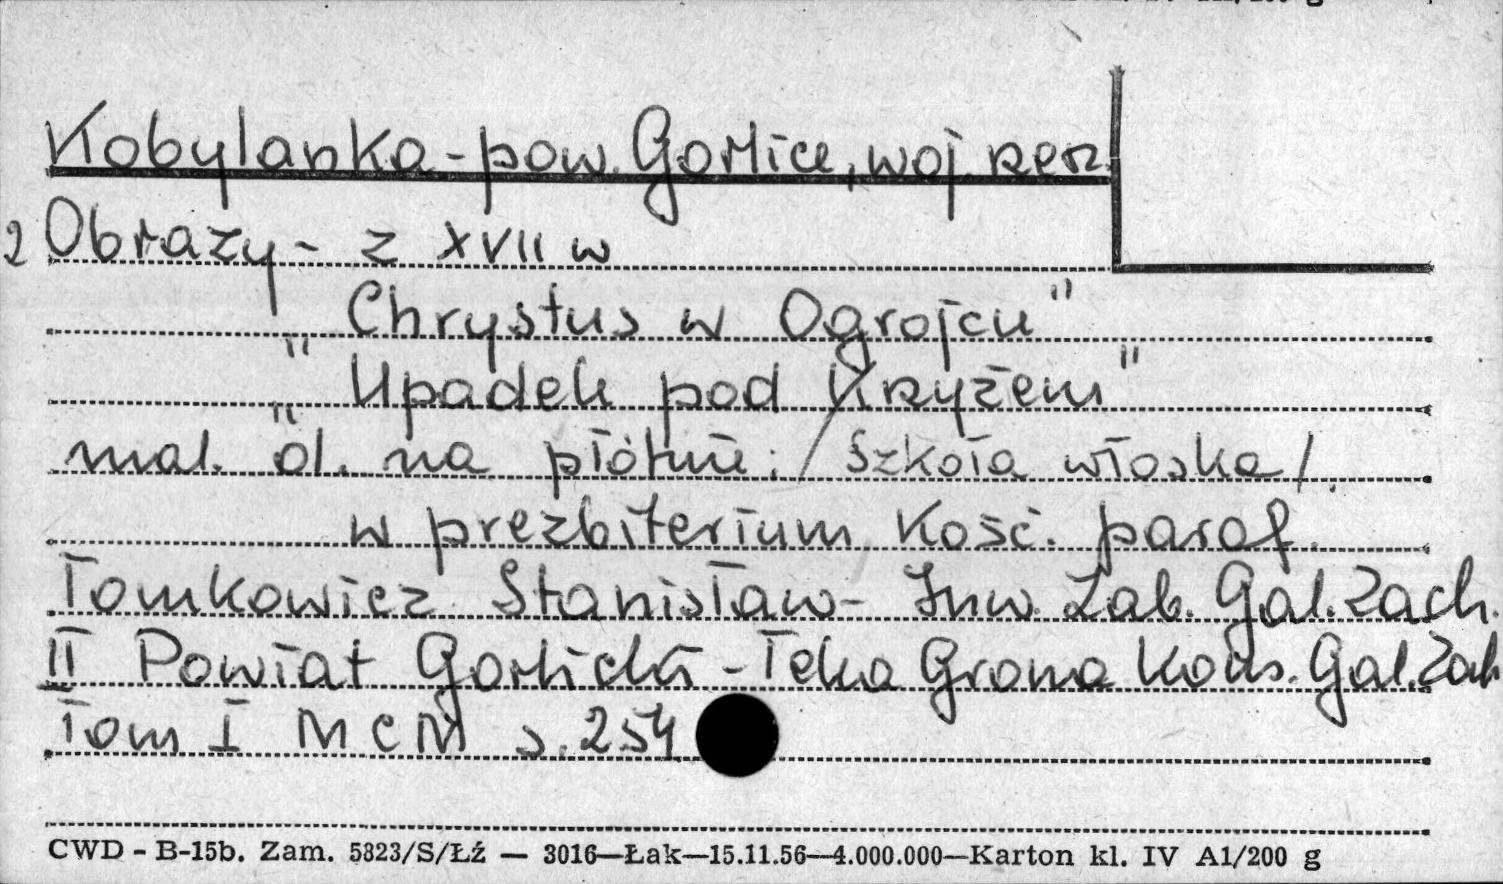 Kobylanka - pow. Gorlice, woj. rzesz.
2 Obrazy - z XVII w
"Chrystus w Ogrojcu"
"Upadek pod Krzyżem"
mal. ol. na płótnie: /szkoła włoska/.
w prezbiterium Kość. paraf.
Tomkowicz Stanisław - Inw. Zab. Gal. Zach.
II Powiat Gorlicki - Teka Grona Kons. Gal. Zach
Tom I MCM s. 254
CWD - B-15b. Zam. 5823/S/Łź — 3016—Łak—15.11.56—4.000.000—Karton kl. IV A1/200 g